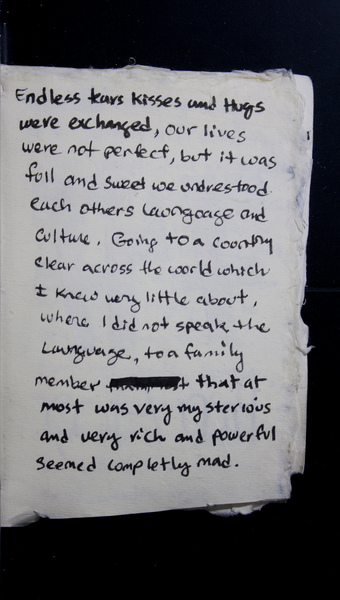 Endless tears kisses and Hugs
were exchanged, our lives
were not perfect, but it was
full and sweet we undrestood
each others Laungage and
culture. Going to a country
clear across the world which
I knew very little about,
where I did not speak the
Launguage, to a family
member that at
most was very mysterious
and very rich and powerful
seemed completly mad.